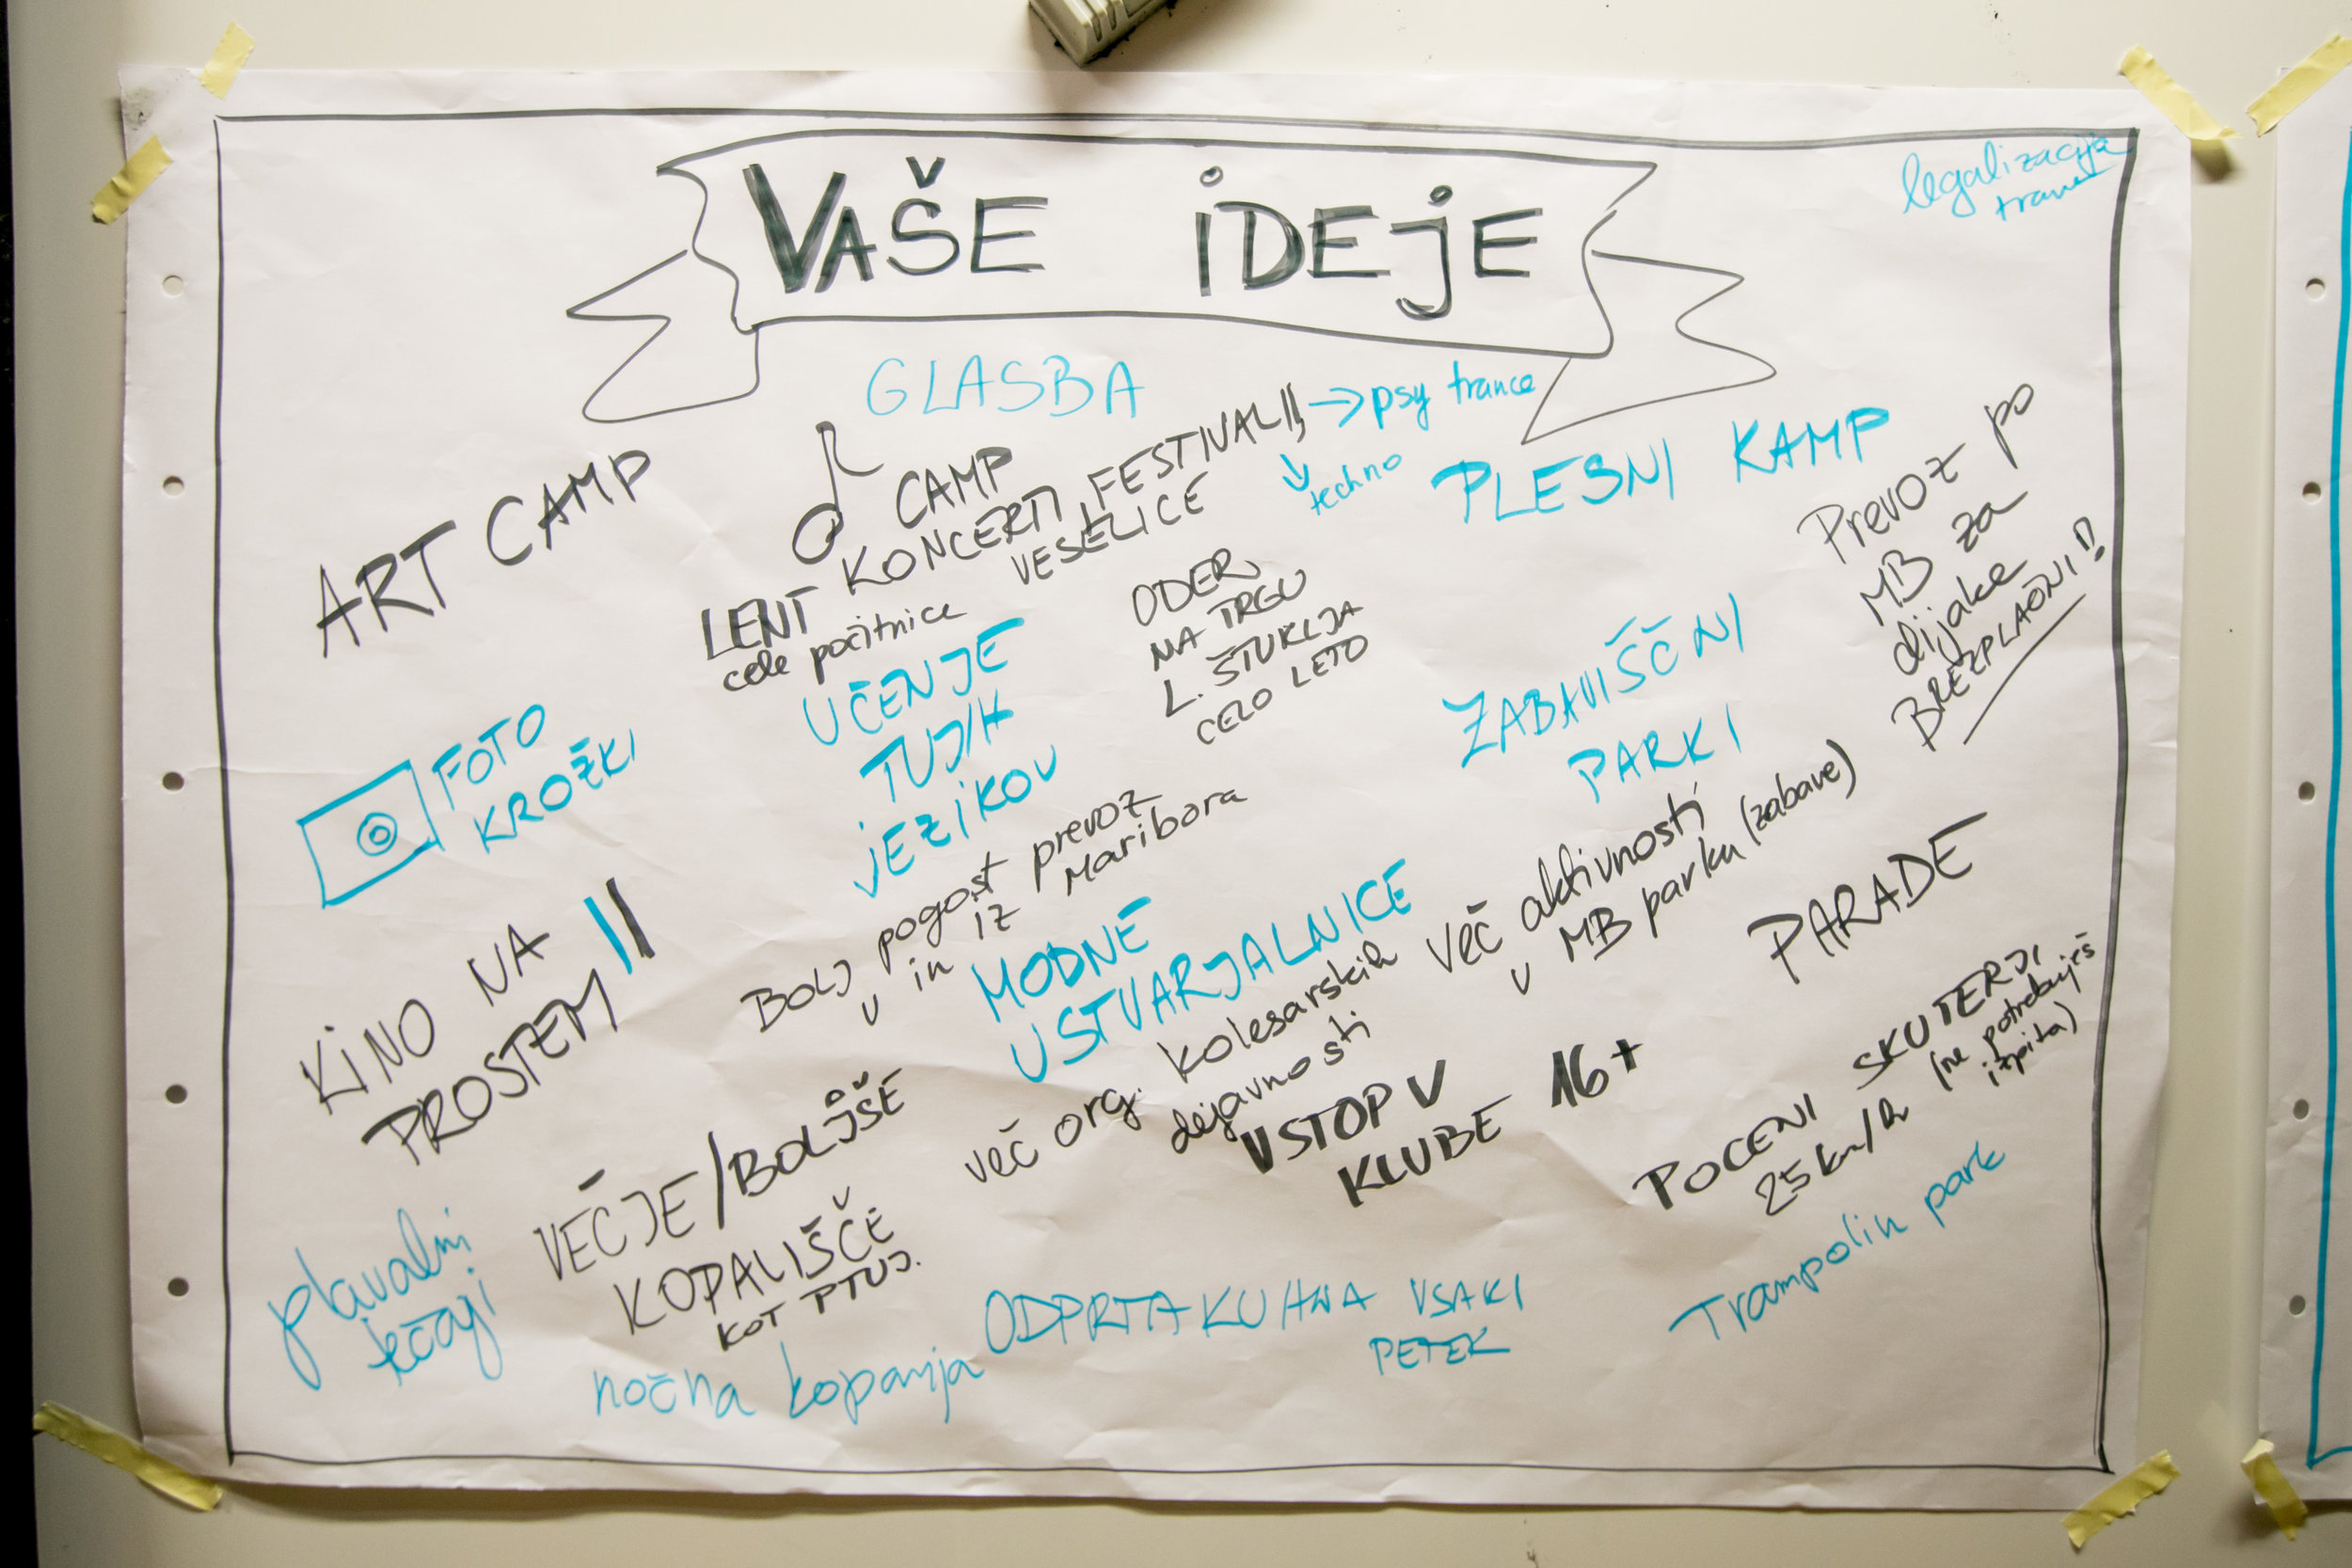 VAŠE IDEJE
legalizacija
trave
GLASBA
CAMP
KONCERTI, FESTIVALI, → psy trance
↓
techno
VESELICE
LENT
cele počitnice
ART CAMP
PLESNI KAMP
Prevoz po
MB za
dijake
BREZPLAČNI!!
ODER
NA TRGU
L. ŠTUKLJA
CELO LETO
UČENJE
TUJIH
JEZIKOV
ZABAVIŠČNI
PARKI
FOTO
KROŽKI
BOLJ pogost prevoz
v in iz Maribora
MODNE
USTVARJALNICE
več aktivnosti
v MB parku (zabave)
PARADE
KINO NA
PROSTEM
več org. kolesarskih
dejavnosti
VSTOP V
KLUBE 16+
POCENI SKUTERJI
25 km/h (ne potrebuješ
izpita)
VEČJE/BOLJŠE
KOPALIŠČE
KOT PTUJ.
plavalni
tečaji
nočna kopanja
ODPRTA KUHNA VSAKI
PETEK
Trampolin park